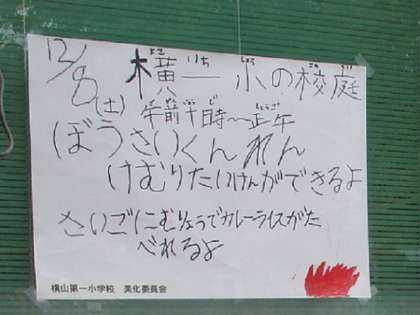 12/8(土) 横一小の校庭
午前十時～正午
ぼうさいくんれん
けむりたいけんができるよ
さいごにむりょうでカレーライスがた
べれるよ
横山第一小学校 美化委員会